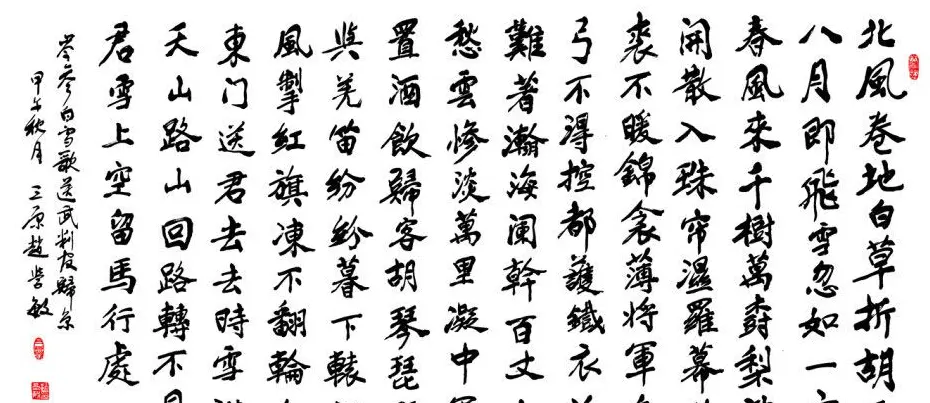 北風卷地白草折胡
八月即飛雪忽如一
春風來千樹萬壽梨
開散入珠帘濕羅幕
裘不暖錦衾薄將軍
弓不得控都護鐵衣
難著瀚海闌幹百丈
愁雲慘淡萬里凝中
置酒飲歸客胡琴琵
與羌笛紛紛暮下轅
風掣紅旗凍不翻輪
東门送君去去時雪
天山路山回路轉不
君雪上空留馬行處
岑參白雪歌送武判官歸京
甲午秋月 三原趙學敏